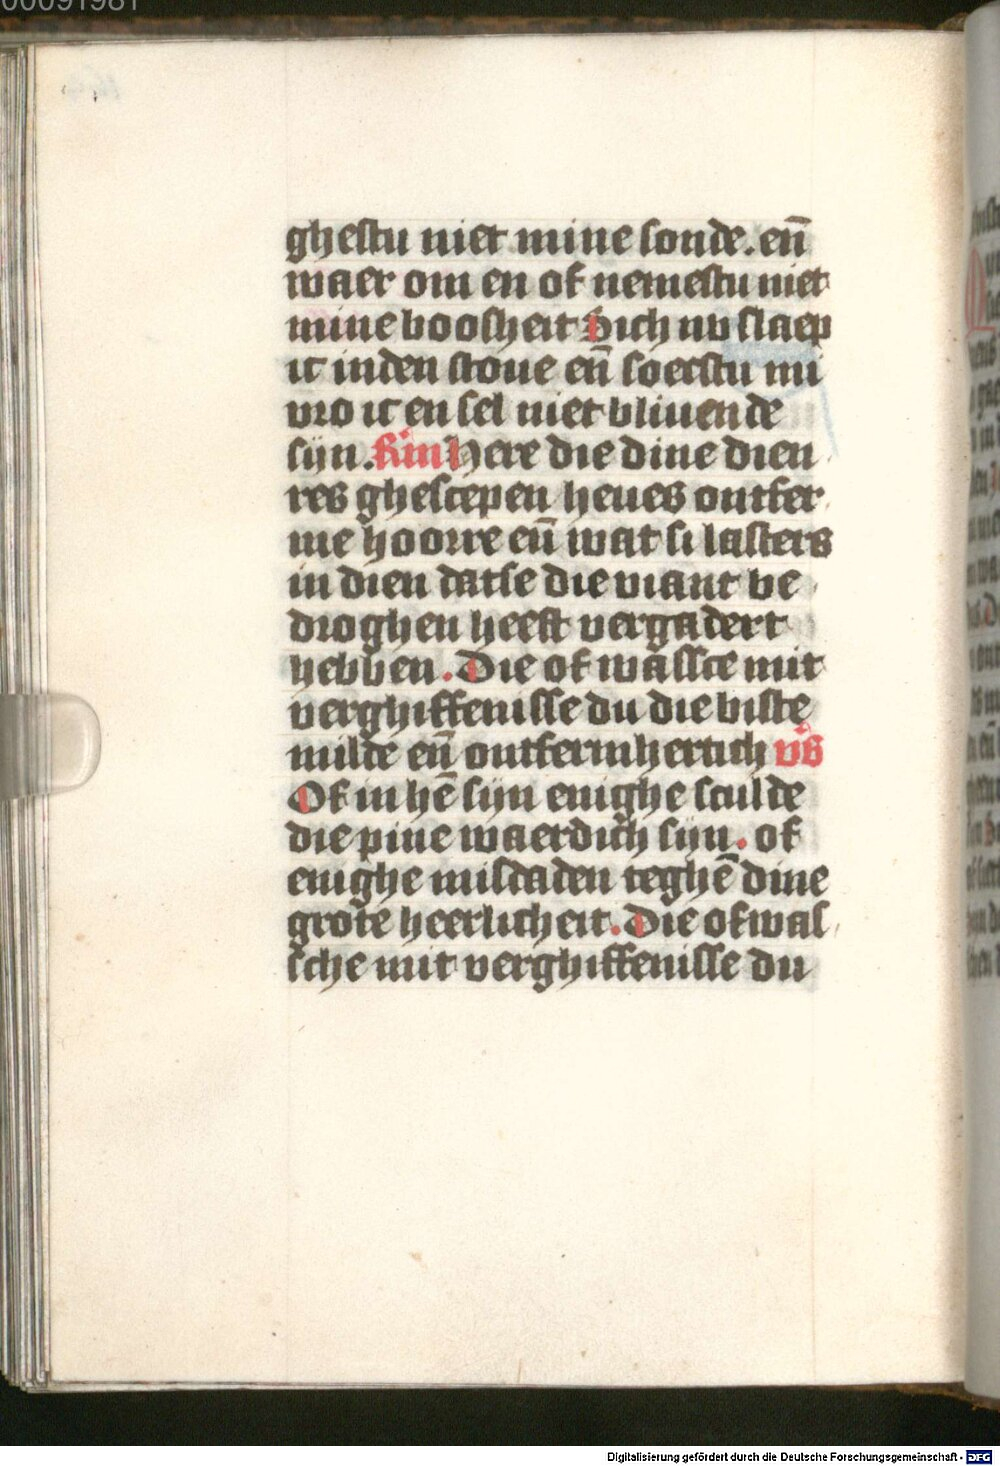 00091981
ghestu niet mine sonde. en̄
waer om en of nemestu niet
mine boosheit Sich nu slaep
ic inden stoue en̄ soecstu mi
vro ic en sel niet bliuende
sijn. Here die dine dien
res ghescepen heues ontfer
me hoorre en̄ wat si lasters
in dien datse die viant be
droghen heeft vergadert
hebben. Die of wassce mit
verghiffenisse du die biste
milde en̄ ontfermhertich vs̄
Of in hē sijn enighe sculde
die pine waerdich sijn. of
enighe misdaden teghē dine
grote heerlicheit. Die ofwas
sche mit verghiffenisse du
Digitalisierung gefördert durch die Deutsche Forschungsgemeinschaft - DFG